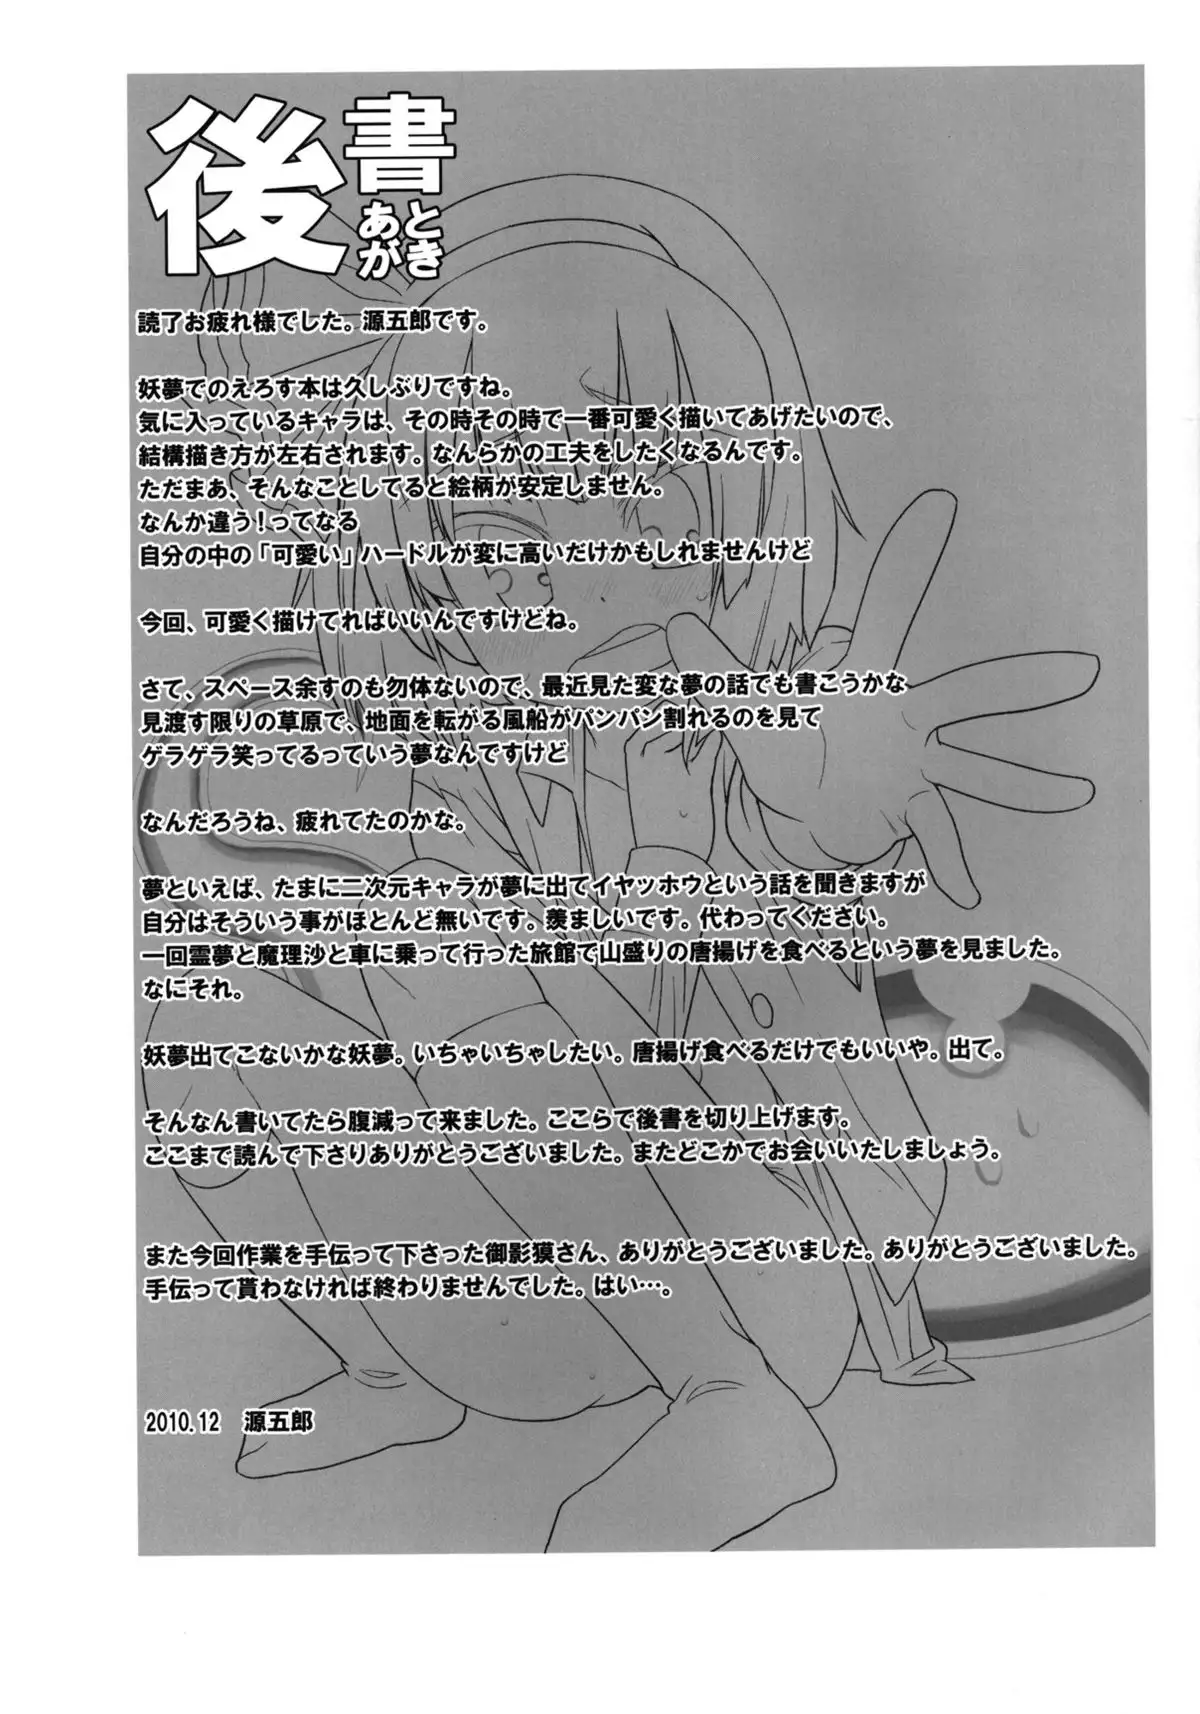 後書
あとがき
読了お疲れ様でした。源五郎です。
妖夢でのえろす本は久しぶりですね。
気に入っているキャラは、その時その時で一番可愛く描いてあげたいので、
結構描き方が左右されます。なんらかの工夫をしたくなるんです。
ただまあ、そんなことしてると絵柄が安定しません。
なんか違う！ってなる
自分の中の「可愛い」ハードルが変に高いだけかもしれませんけど
今回、可愛く描けてればいいんですけどね。
さて、スペース余すのも勿体ないので、最近見た変な夢の話でも書こうかな
見渡す限りの草原で、地面を転がる風船がパンパン割れるのを見て
ゲラゲラ笑ってるっていう夢なんですけど
なんだろうね、疲れてたのかな。
夢といえば、たまに二次元キャラが夢に出てイヤッホウという話を聞きますが
自分はそういう事がほとんど無いです。羨ましいです。代わってください。
一回霊夢と魔理沙と車に乗って行った旅館で山盛りの唐揚げを食べるという夢を見ました。
なにそれ。
妖夢出てこないかな妖夢。いちゃいちゃしたい。唐揚げ食べるだけでもいいや。出て。
そんなん書いてたら腹減って来ました。ここらで後書を切り上げます。
ここまで読んで下さりありがとうございました。またどこかでお会いいたしましょう。
また今回作業を手伝って下さった御影獏さん、ありがとうございました。ありがとうございました。
手伝って貰わなければ終わりませんでした。はい…。
2010.12　源五郎